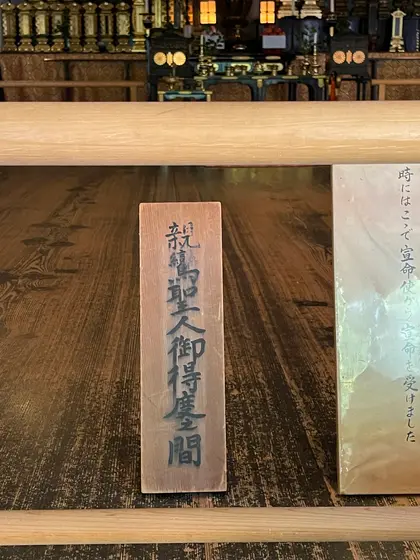 時にはここで宣命使 宣命を受けました
親鸞聖人御得度之間